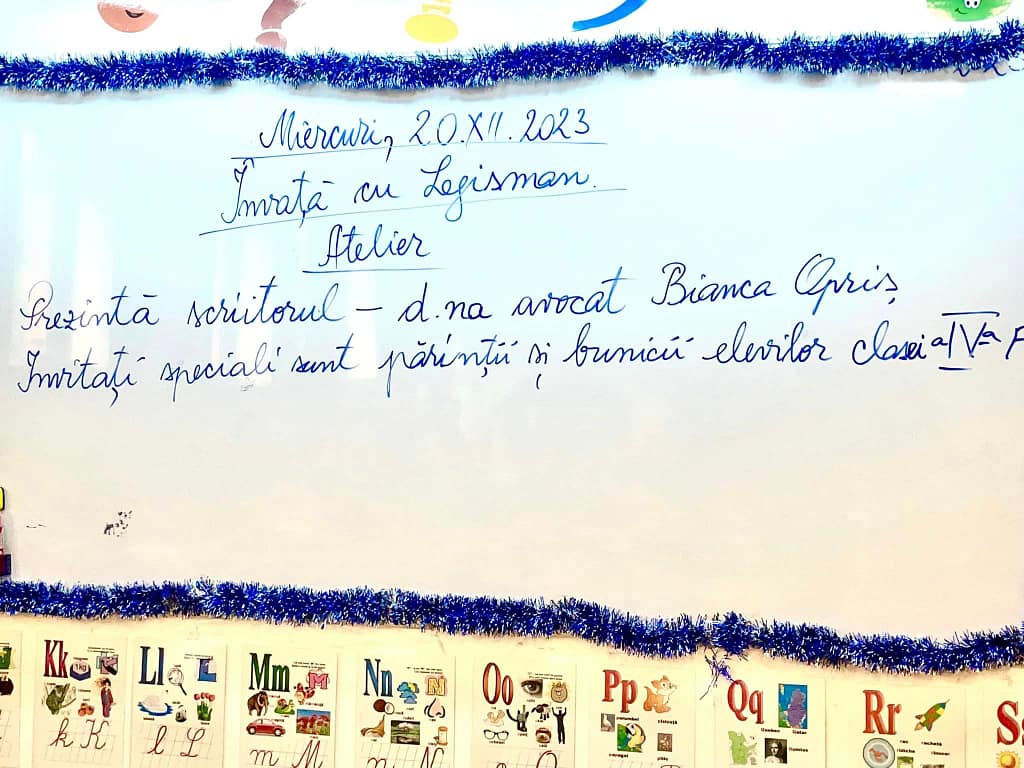 Miercuri, 20.XII.2023
Învață cu Legisman.
Atelier
Prezintă scriitorul – d.na avocat Bianca Opriș
Invitați speciali sunt părinții și bunicii elevilor clasei a IV-a F
Kk Ll Mm Nn Oo Pp Qq Rr S
k K l L m M n N